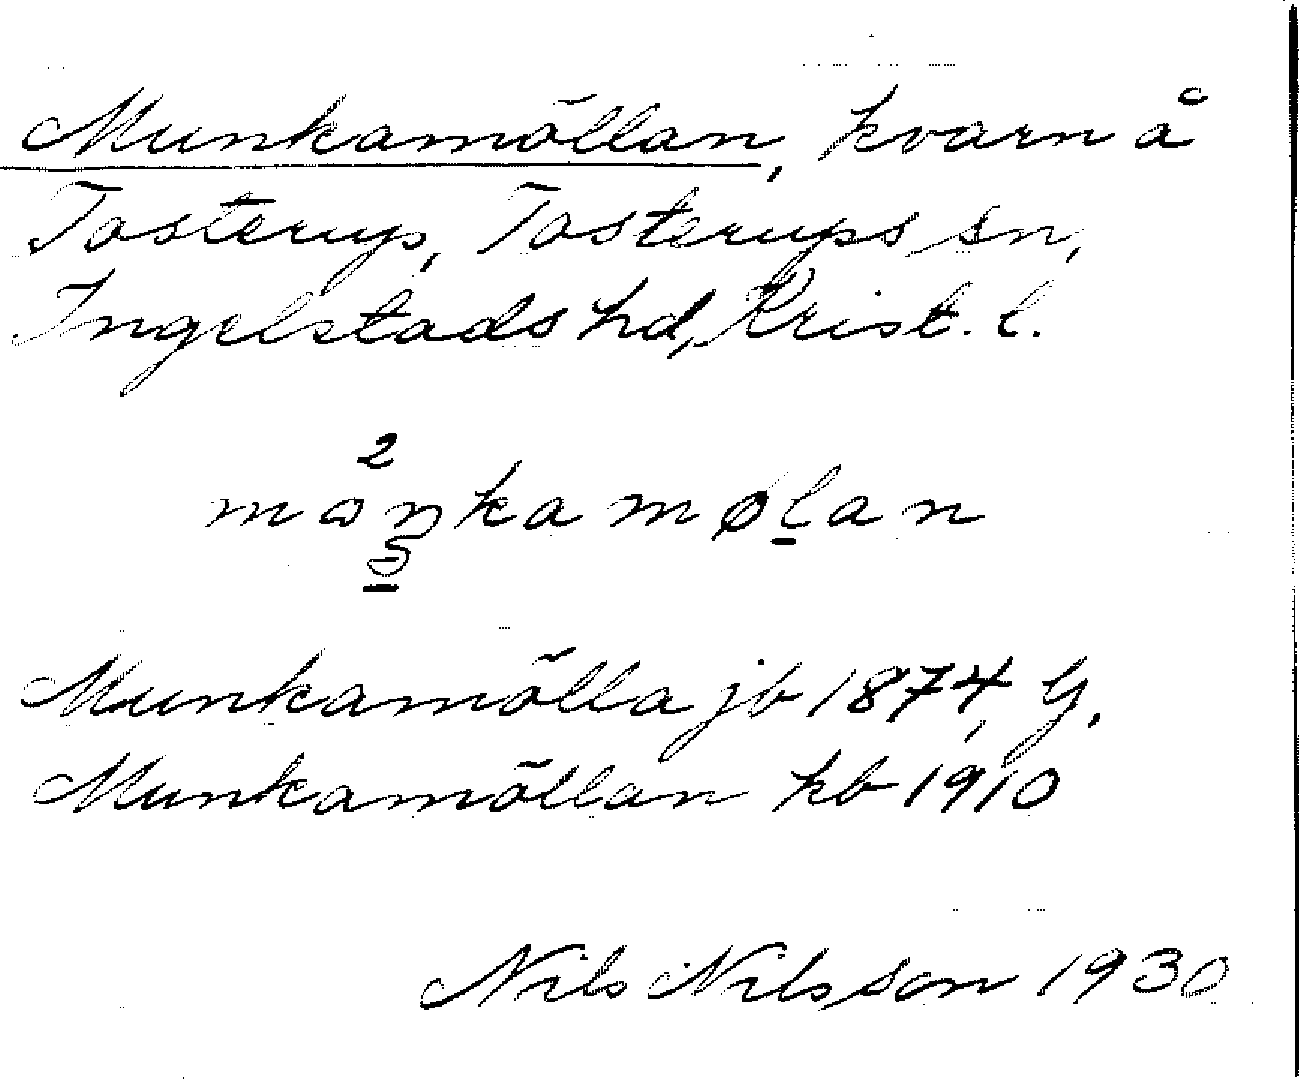 Munkamöllan, kvarn å
Tosterup, Tosterups sn,
Ingelstads hd, Krist. l.
2
måŋkamølan
Munkamölla jb 1874, G.
Munkamöllan kb 1910
Nils Nilsson 1930